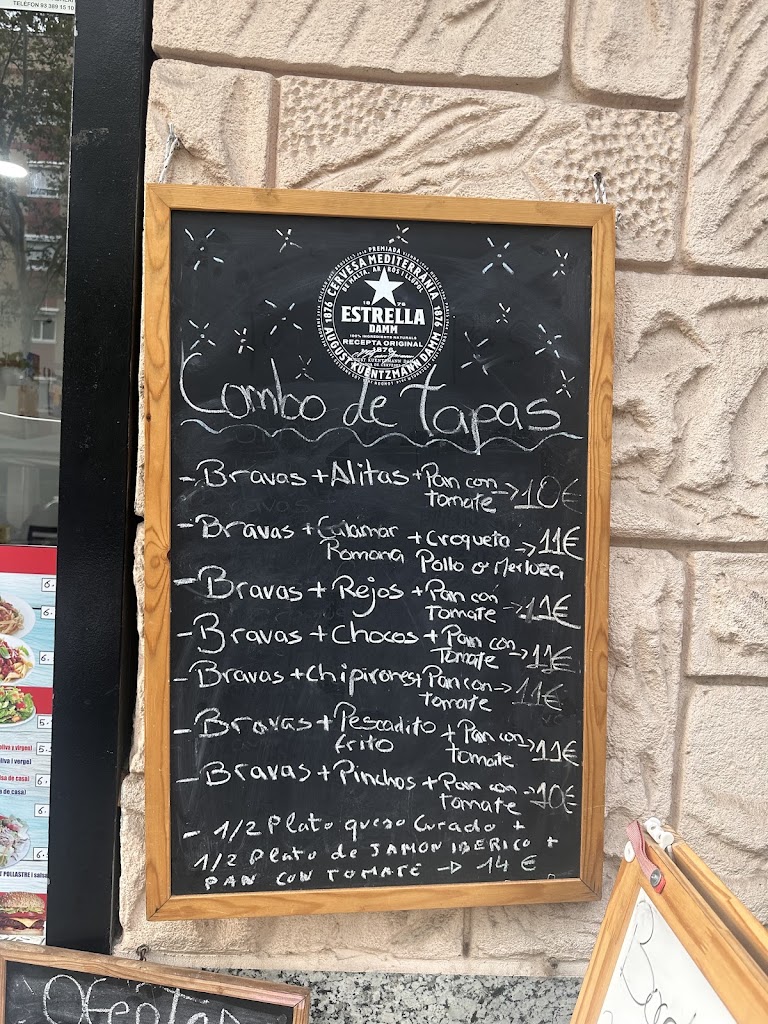 TELÈFON 93 389 15 10
PREMIADA
CERVESA MEDITERRÀNIA
DE MALTA, ARRÒS I LLÚPOL
1876
1876
1876
ESTRELLA
DAMM
100% INGREDIENTS NATURALS
RECEPTA ORIGINAL
1876
AUGUST KUENTZMANN DAMM
Combo de tapas
- Bravas + Alitas + Pan con
tomate -> 10€
- Bravas + Calamar + Croqueta -> 11€
Romana Pollo o Merluza
- Bravas + Rejos + Pan con
Tomate -> 11€
- Bravas + Chocos + Pan con
Tomate -> 11€
- Bravas + Chipirones + Pan con -> 11€
tomate
- Bravas + Pescadito + Pan con
frito tomate -> 11€
- Bravas + Pinchos + Pan con -> 10€
tomate
- 1/2 Plato queso Curado +
1/2 Plato de JAMON IBERICO +
PAN CON TOMATE -> 14 €
POLLASTRE i salsa
Ofertas